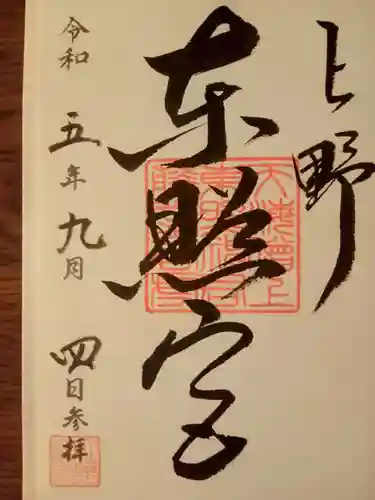 上野
東照宮
令和五年九月四日参拝